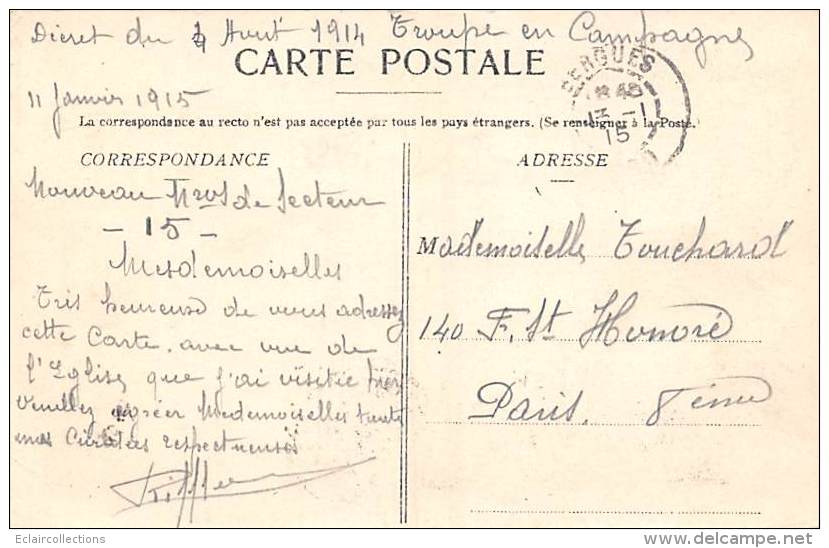 Dicret du 4 Aout 1914 Troupe en Campagne
CARTE POSTALE
11 Janvier 1915
BERGUES
13 -1
15
La correspondance au recto n'est pas acceptée par tous les pays étrangers. (Se renseigner à la Poste.)
CORRESPONDANCE
Nouveau Nros de Secteur
- 15 -
Mesdemoiselles
Tris heureuse de vous adresser
cette Carte. avec vue de
l'Eglise que j'ai visitie hier
Veuillez agréer Mesdemoiselles toute
mes Civilitees respectueuses
ADRESSE
Mademoiselle Touchard
140 F. St Honoré
Paris. 8ème
Eclaircollections
delcampe.net